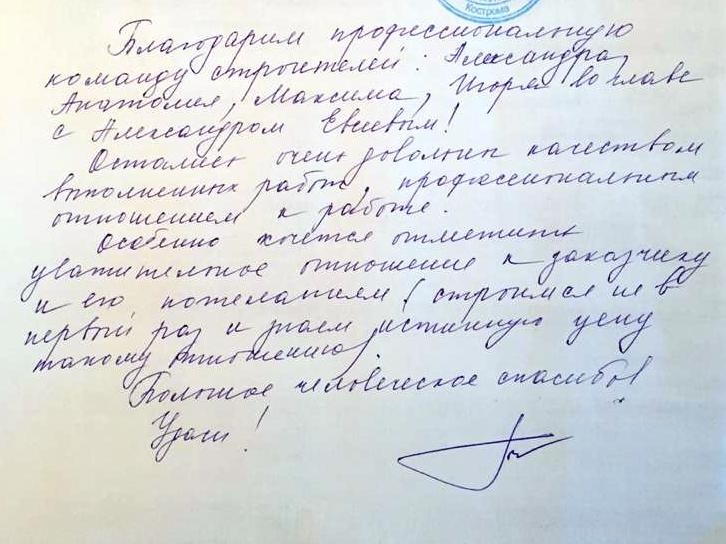 Кострома
Благодарим профессиональную
команду строителей: Александра,
Анатолия, Максима, Игоря во главе
с Александром Евсеевым!
Остались очень довольны качеством
выполненных работ, профессиональным
отношением к работе.
Особенно хочется отметить
уважительное отношение к заказчику
и его пожеланиям (строимся не в
первый раз и знаем истинную цену
такому отношению).
Большое человеческое спасибо!
Удачи!